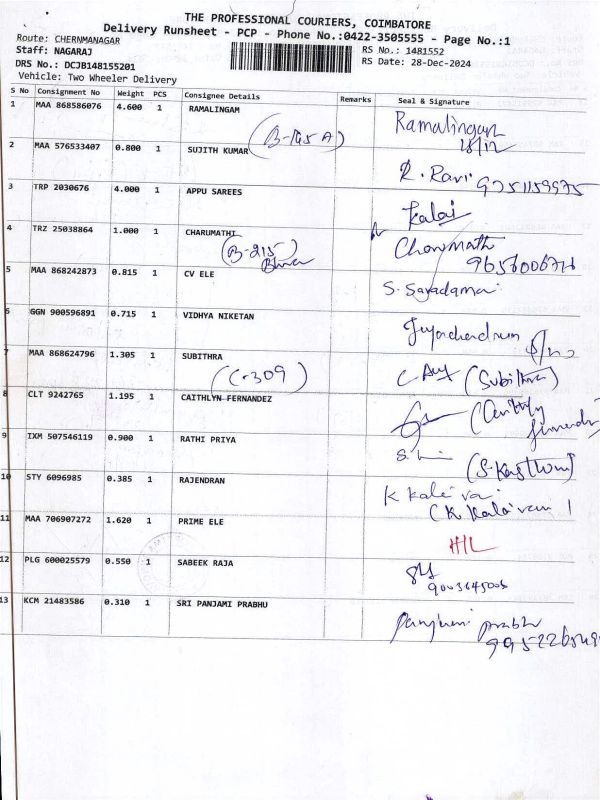 THE PROFESSIONAL COURIERS, COIMBATORE
Delivery Runsheet - PCP - Phone No.:0422-3505555 - Page No.:1
Route: CHERNMANAGAR
Staff: NAGARAJ
RS No.: 1481552
DRS No.: DCJB148155201
RS Date: 28-Dec-2024
Vehicle: Two Wheeler Delivery
S No Consignment No Weight PCS Consignee Details Remarks Seal & Signature
1 MAA 868586076 4.600 1 RAMALINGAM Ramalingam
(B-145 A) 28/12
2 MAA 576533407 0.800 1 SUJITH KUMAR
R. Ravi 9751159975
3 TRP 2030676 4.000 1 APPU SAREES
Kalai
4 TRZ 25038864 1.000 1 CHARUMATHI
(B-215)
5 MAA 868242873 0.815 1 CV ELE
6 GGN 900596891 0.715 1 VIDHYA NIKETAN
7 MAA 868624796 1.305 1 SUBITHRA
(C-309) (Subithra)
8 CLT 9242765 1.195 1 CAITHLYN FERNANDEZ
9 IXM 507546119 0.900 1 RATHI PRIYA
10 STY 6096985 0.385 1 RAJENDRAN
11 MAA 706907272 1.620 1 PRIME ELE
12 PLG 600025579 0.550 1 SABEEK RAJA
9003645006
13 KCM 21483586 0.310 1 SRI PANJAMI PRABHU
Panjami prabhu